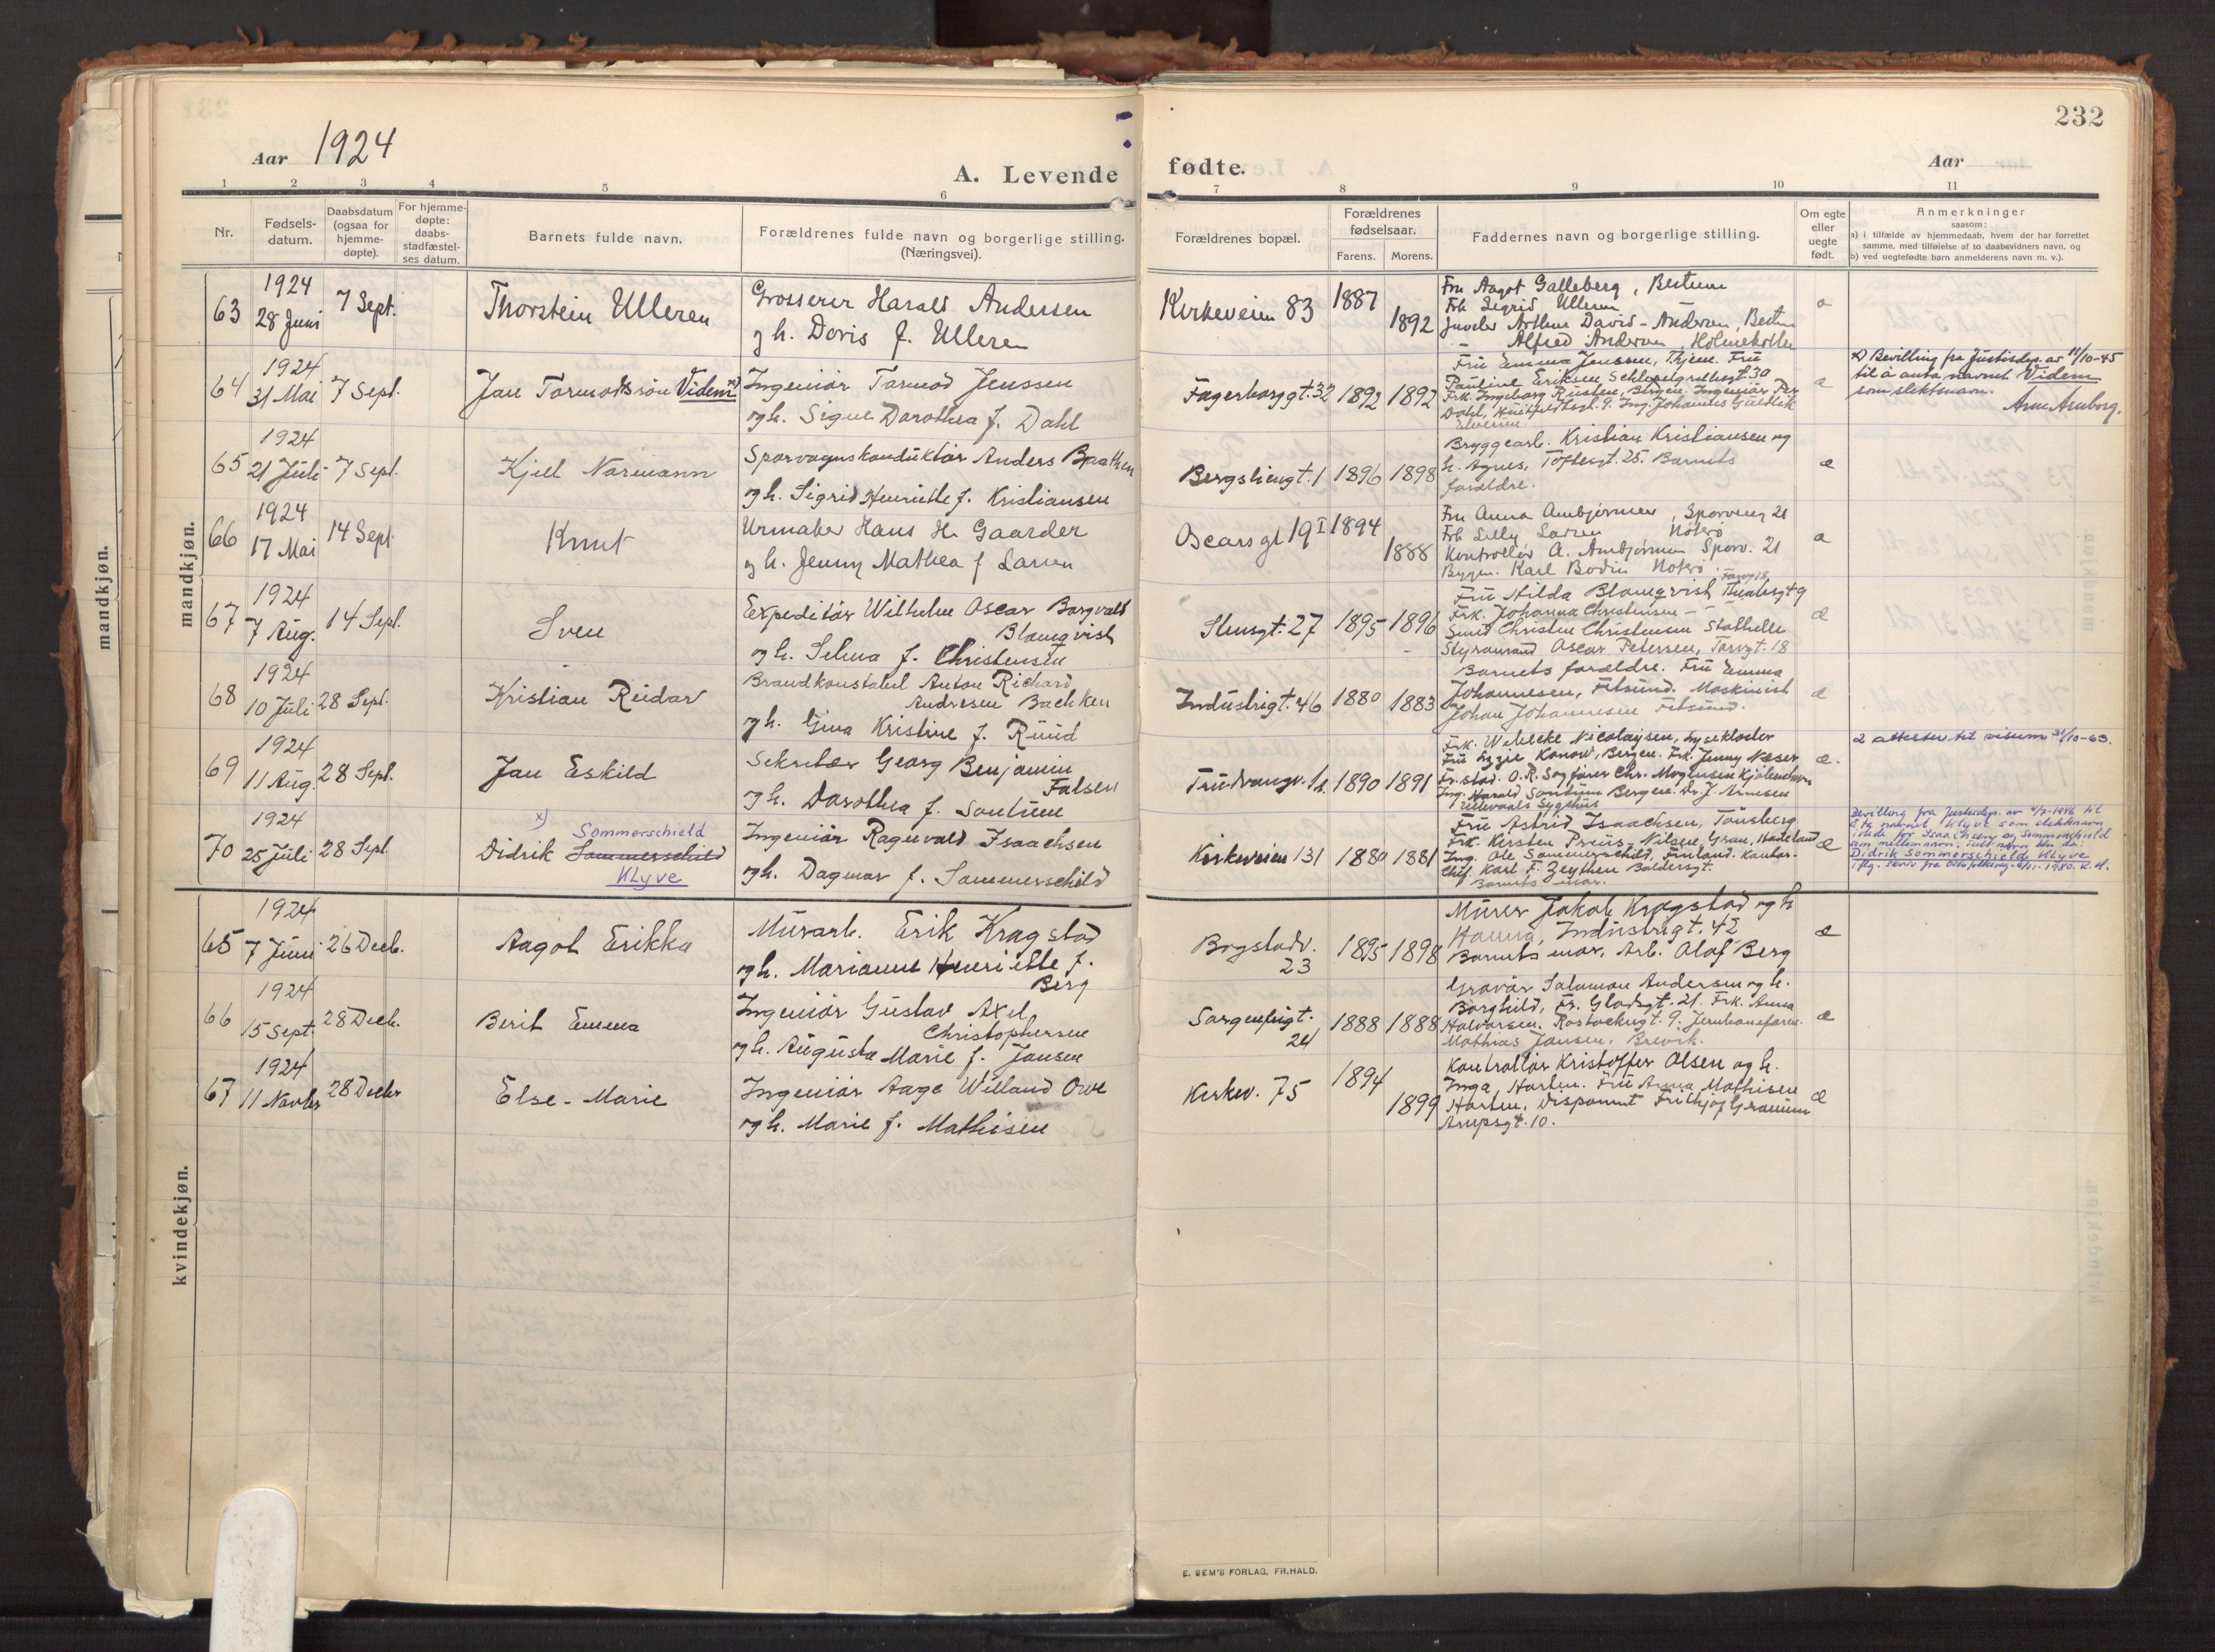 232
Aar 1924
A. Levende
fødte.
Aar
1 2 3 4 5 6
7 8 9 10 11
Nr.
Fødsels-
datum.
Daabsdatum
(ogsaa for
hjemme-
døpte).
For hjemme-
døpte:
daabs-
stadfæstel-
ses datum.
Barnets fulde navn.
Forældrenes fulde navn og borgerlige stilling.
(Næringsvei).
Forældrenes bopæl.
Forældrenes
fødselsaar.
Farens. Morens.
Faddernes navn og borgerlige stilling.
Om egte
eller
uegte
født.
Anmerkninger
saasom:
a) i tilfælde av hjemmedaab, hvem der har forrettet
samme, med tilføielse af to daabsvidners navn, og
b) ved uegtefødte barn anmelderens navn m. v.).
mandkjøn.
mandkjøn.
63
1924
28 Juni
7 Sept.
Thorstein Ulleren
Grosserer Harald Andersen
og h. Doris f. Ulleren
Kirkeveien 83
1887
1892
Fru Aagot Galleberg, Bestum
Frk Sigrid Ulleren
Juveler Arthur David-Andersen, Bestum
- Alfred Andersen, Holmenkollen
64
1924
31 Mai
7 Sept.
Jan Tormodssön Videm x)
Ingeniör Tormod Jenssen
og h. Signe Dorothea f. Dahl
Fagerborggt. 32
1892
1892
Fru Emma Jenssen, Thjem. Fru
Pauline Eriksen Schleppegrellsgt. 30
Frk. Ingeborg Bergen. Ingeniör Per
Dahl, Huitfeldtsgt. 9. Ing. Johannes
Elverum.
æ
x) Bevilling fra Justisdep. av 11/10-45
til å anta navnet Videm
som slektsnavn.
Arne Arnborg.
65
1924
21 Juli
7 Sept.
Kjell Normann
Sporvognskonduktör Anders Braathen
og h. Sigrid Henriette f. Kristiansen
Bergsliengt. 1
1896
1898
Bryggearb. Kristian Kristiansen og
h. Agnes, Toftesgt. 25. Barnets
forældre.
æ
66
1924
17 Mai
14 Sept.
Knut
Urmaker Hans H. Gaarder
og h. Jenny Mathea f Larsen
Oscarsgt 19 I
1894
1888
Fru Anna Ambjörnsen, Sporveisg 21
Frk Lilly Larsen Nöterö
Kontrollör A. Ambjörnsen Sporv. 21
Byggm. Karl Bodin Nöterö
67
1924
7 Aug.
14 Sept.
Sven
Expeditör Wilhelm Oscar Borgvald
Blomqvist
og h. Selma f. Christensen
Stensgt. 27
1895
1896
Fru Hilda Blomqvist Theatergt 9
Frk. Johanna Christensen - -
Smed Christen Christensen Stathelle
Styrmand Oscar Petersen, Torvgt. 18
æ
68
1924
10 Juli
28 Sept.
Kristian Reidar
Brandkonstabel Anton Richard
Andresen Bachken
og h. Gina Kristine f. Ruud
Industrigt. 46
1880
1883
Barnets forældre. Fru Emma
Johannesen, Fetsund. Maskinist
Johan Johannesen Fetsund.
æ
69
1924
11 Aug.
28 Sept.
Jan Eskild
Sekretær Georg Benjamin
Falsen
og h. Dorothea f. Sontum
Trudvangv. 12
1890
1891
Frk. Wibecke Nicolaysen, Lysekloster
Fru Lizzie Konow, Bergen. Frk. Jenny Næser
Fr.stad. O.R. Sagförer Chr. Mogensen Kjölenhavn
Ing. Harald Sontum Bergen. Dr. J. Arnesen
Ullevaals Sygehus
æ.
2 attester til visum 31/10-63.
70
1924
25 Juli
28 Sept.
x)
Didrik Sommerschild
Sommerschield
Klyve
Ingeniör Ragnvald Isaachsen
og h. Dagmar f. Sommerschild
Kirkeveien 131
1880
1881
Fru Astrid Isaachsen, Tönsberg.
Frk. Kirsten Preus Nilsen, Gran, Hadeland
Ing. Ole Sommerschild, Finland. Kontor-
chef Karl F. Zeythen Baldersgt.
Barnets mor.
æ
Bevilling fra Justisdep. av 4/2-1946 til
å ta navnet Klyve som slektsnavn
istede for Isaachsen og Sommerschield
som mellemnavn.
Didrik Sommerschield Klyve
kvindekjøn.
65
1924
7 Juni
26 Decb.
Aagot Erikka
Murarb. Erik Kragstad
og h. Marianne Henriette f.
Berg
Bogstadv.
23
1895
1898
Murer Jakob Kragstad og h
Hanna, Industrigt. 42
Barnets mor. Arb. Olaf Berg
æ
66
1924
15 Sept.
28 Decb.
Berit Emma
Ingeniör Gustav Axel
Christophersen
og h. Augusta Marie f. Jansen
Sorgenfrigt.
24
1888
1888
Gravör Salomon Andersen og h.
Borghild, Fr. Gladsgt. 21. Frk. Anna
Halvorsen, Rostockergt. 9. Jernbaneform.
Mathias Jansen, Brevik.
æ
67
1924
11 Novbr
28 Decbr
Else-Marie
Ingeniör Aage Willand Owe
og h. Marie f. Mathisen
Kirkev. 75
1894
1899
Kontrollör Kristoffer Olsen og h.
Inga, Horten. Fru Anna Mathisen
Horten. Disponent Frithjof Gramm
Arupsgt. 10.
æ
E. SEM'S FORLAG, FR.HALD.